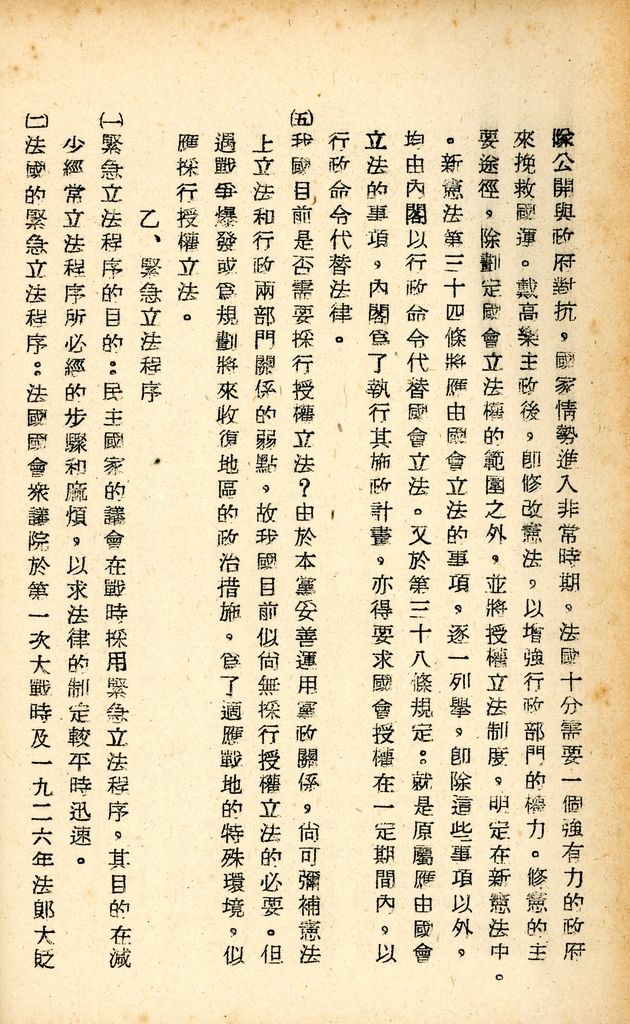 除公開與政府對抗，國家情勢進入非常時期。法國十分需要一個強有力的政府
來挽救國運。戴高樂主政後，卽修改憲法，以增強行政部門的權力。修憲的主
要途徑，除劃定國會立法權的範圍之外，並將授權立法制度，明定在新憲法中。
。新憲法第三十四條將應由國會立法的事項，逐一列舉，卽除這些事項以外，
均由內閣以行政命令代替國會立法。又於第三十八條規定：就是原屬應由國會
立法的事項，內閣爲了執行其施政計畫，亦得要求國會授權在一定期間內，以
行政命令代替法律。
㈤我國目前是否需要採行授權立法？由於本黨妥善運用黨政關係，尙可彌補憲法
上立法和行政兩部門關係的弱點，故我國目前似尙無採行授權立法的必要。但
遇戰爭爆發或爲規劃將來收復地區的政治措施，爲了適應戰地的特殊環境，似
應採行授權立法。
乙、緊急立法程序
㈠緊急立法程序的目的：民主國家的議會在戰時採用緊急立法程序，其目的在減
少經常立法程序所必經的步驟和麻煩，以求法律的制定較平時迅速。
㈡法國的緊急立法程序：法國國會衆議院於第一次大戰時及一九二六年法郞大貶